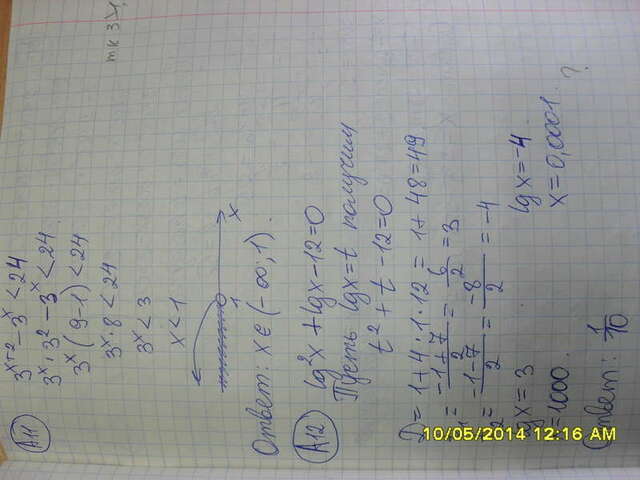 А11
3^(x+2) - 3^x < 24
3^x · 3^2 - 3^x < 24
3^x (9-1) < 24
3^x · 8 < 24
3^x < 3
x < 1
т к 3>1,
1 x
Ответ: x ∈ (-∞; 1).
А12
lg²x + lgx - 12 = 0
Пусть lgx = t получим
t² + t - 12 = 0
D = 1 + 4 · 1 · 12 = 1 + 48 = 49
1 = (-1+7)/2 = 6/2 = 3
2 = (-1-7)/2 = -8/2 = -4
lgx = 3 lgx = -4
x = 1000. x = 0,0001. ?
Ответ: 1/10
10/05/2014 12:16 AM